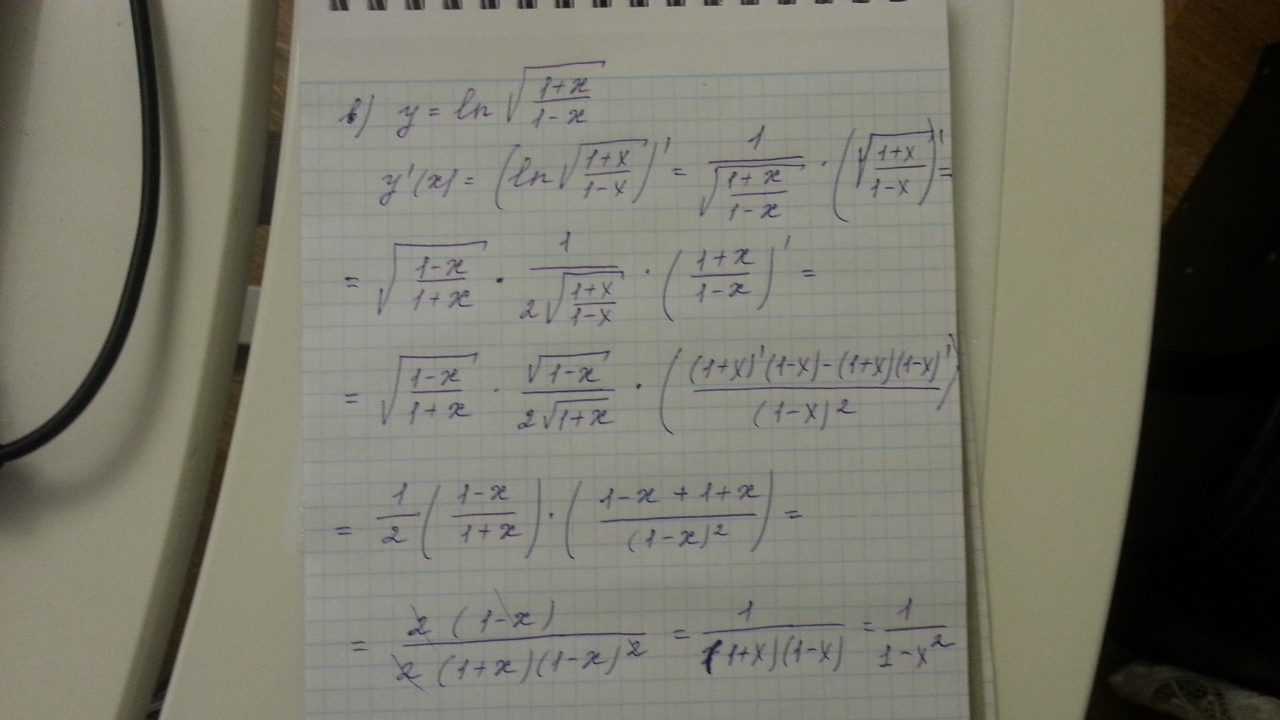 в) y = ln √((1+x)/(1-x))
y'(x) = (ln √((1+x)/(1-x)))' = 1/√((1+x)/(1-x)) · (√((1+x)/(1-x)))' =
= √((1-x)/(1+x)) · 1/(2√((1+x)/(1-x))) · ((1+x)/(1-x))' =
= √((1-x)/(1+x)) · √(1-x)/(2√(1+x)) · (((1+x)'(1-x)-(1+x)(1-x)')/(1-x)²)
= 1/2 ((1-x)/(1+x)) · ((1-x+1+x)/(1-x)²) =
= 2(1-x)/(2(1+x)(1-x)²) = 1/((1+x)(1-x)) = 1/(1-x²)